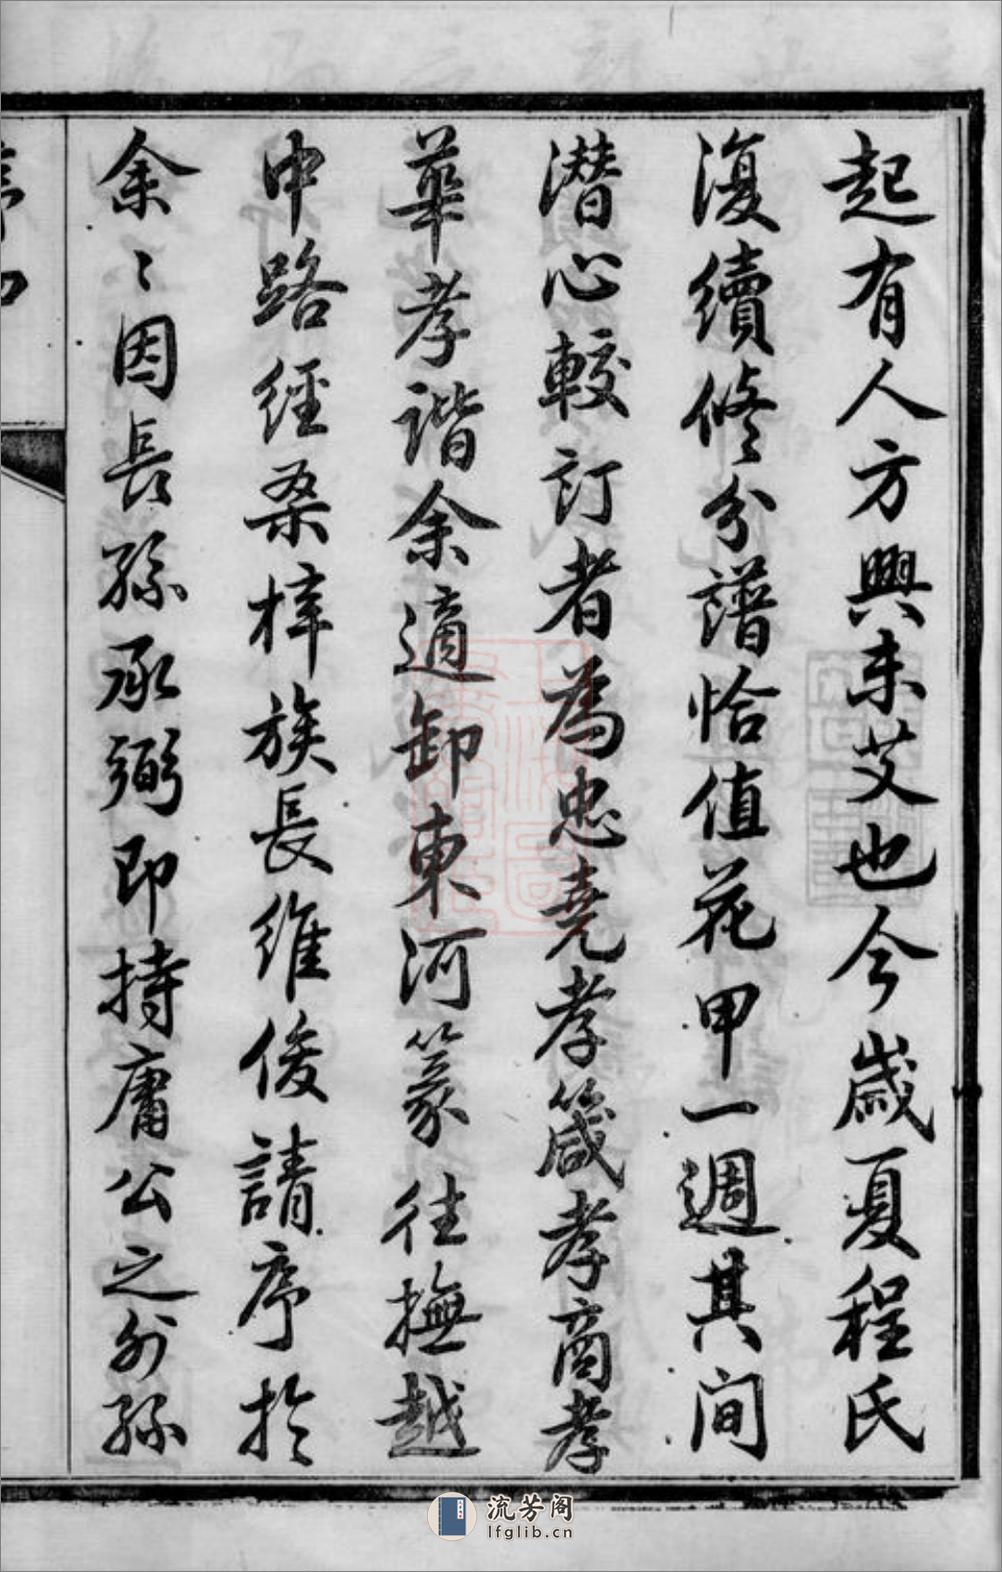 起有人方興未艾也今歲夏程氏
復續修分譜恰值花甲一週其间
潜心較訂者為忠堯孝箴孝商孝
華孝諧余適卸東河篆往撫越
中路經桑梓族長維俊請序於
余〻因長孫承弼即持庸公之外孫
流芳阁
lfglib.cn